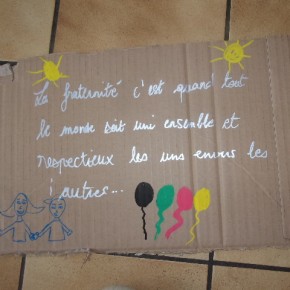 La fraternité c'est quand tout
le monde soit uni ensemble et
respectieux les uns envers les
autres...